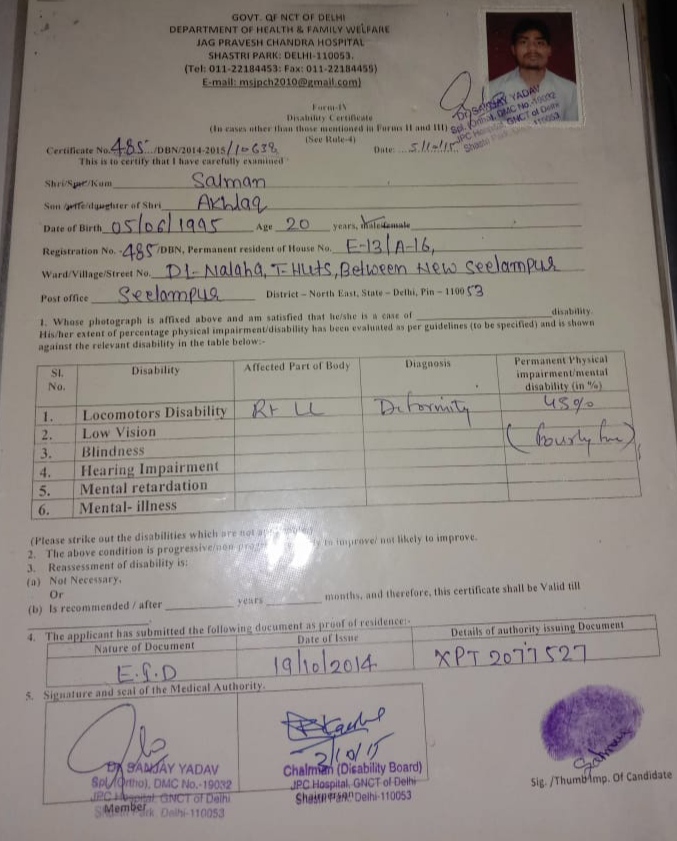 GOVT. OF NCT OF DELHI
DEPARTMENT OF HEALTH & FAMILY WELFARE
JAG PRAVESH CHANDRA HOSPITAL
SHASTRI PARK: DELHI-110053.
(Tel: 011-22184453: Fax: 011-22184455)
E-mail: msjpch2010@gmail.com)
Form-IV
Disability Certificate
(In cases other than those mentioned in Forms II and III)
(See Rule-4)
DR SANJAY YADAV
Spl. (Ortho), DMC No.-19032
JPC Hospital, GNCT of Delhi
Shastri Park, Delhi 110053
Certificate No. 485 /DBN/2014-2015/10639 Date: 5/10/15
This is to certify that I have carefully examined
Shri/Smt/Kum Salman
Son /wife/daughter of Shri Akhlaq
Date of Birth 05/06/1995 Age 20 years, male/female
Registration No. -485/DBN, Permanent resident of House No. E-13/A-16,
Ward/Village/Street No. D1- Nalaha, T-Huts, Between New Seelampur
Post office Seelampur District – North East, State – Delhi, Pin – 110053
1. Whose photograph is affixed above and am satisfied that he/she is a case of disability.
His/her extent of percentage physical impairment/disability has been evaluated as per guidelines (to be specified) and is shown
against the relevant disability in the table below:-
Sl. No. Disability Affected Part of Body Diagnosis Permanent Physical impairment/mental disability (in %)
1. Locomotors Disability Rt LL Deformity 45%
2. Low Vision
3. Blindness
4. Hearing Impairment
5. Mental retardation
6. Mental- illness
(Please strike out the disabilities which are not
2. The above condition is progressive/non- to improve/ not likely to improve.
3. Reassessment of disability is:
(a) Not Necessary,
Or
(b) Is recommended / after years months, and therefore, this certificate shall be Valid till
4. The applicant has submitted the following document as proof of residence:-
Nature of Document Date of Issue Details of authority issuing Document
19/10/2014 XPT 2077527
5. Signature and seal of the Medical Authority.
3/10/15
DR SANJAY YADAV
Spl. (Ortho), DMC No.-19032
JPC Hospital, GNCT of Delhi
Shastri Park, Delhi-110053
Member
Chairman (Disability Board)
JPC Hospital, GNCT of Delhi
Shastri Park, Delhi-110053
Chairperson
Salman
Sig. /Thumb Imp. Of Candidate